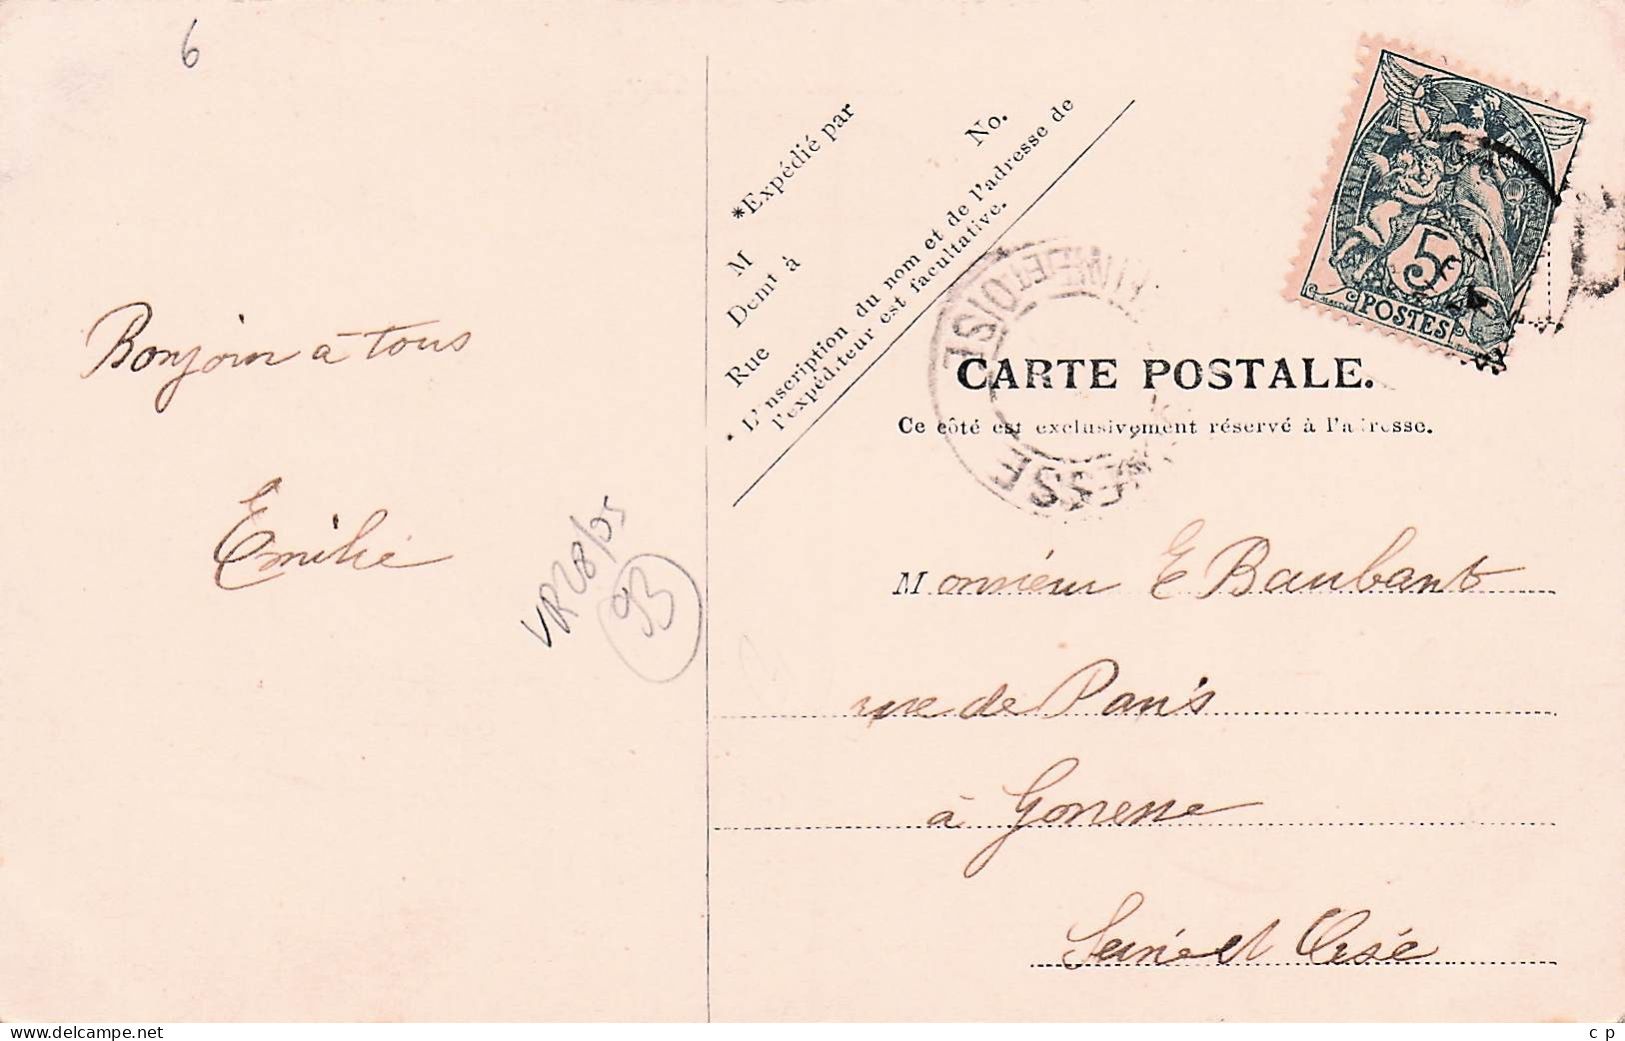 6
Bonjour à tous
Emilie
VR28/05
93
*Expédié par
M No.
Demt à
Rue
* L'inscription du nom et de l'adresse de
l'expéditeur est facultative.
5
POSTES
SEINE ET OISE
ESSE
CARTE POSTALE.
Ce côté est exclusivement réservé à l'adresse.
Monsieur E Baubant
rue de Paris
à Gonesse
Seine et Oise
www.delcampe.net
c p